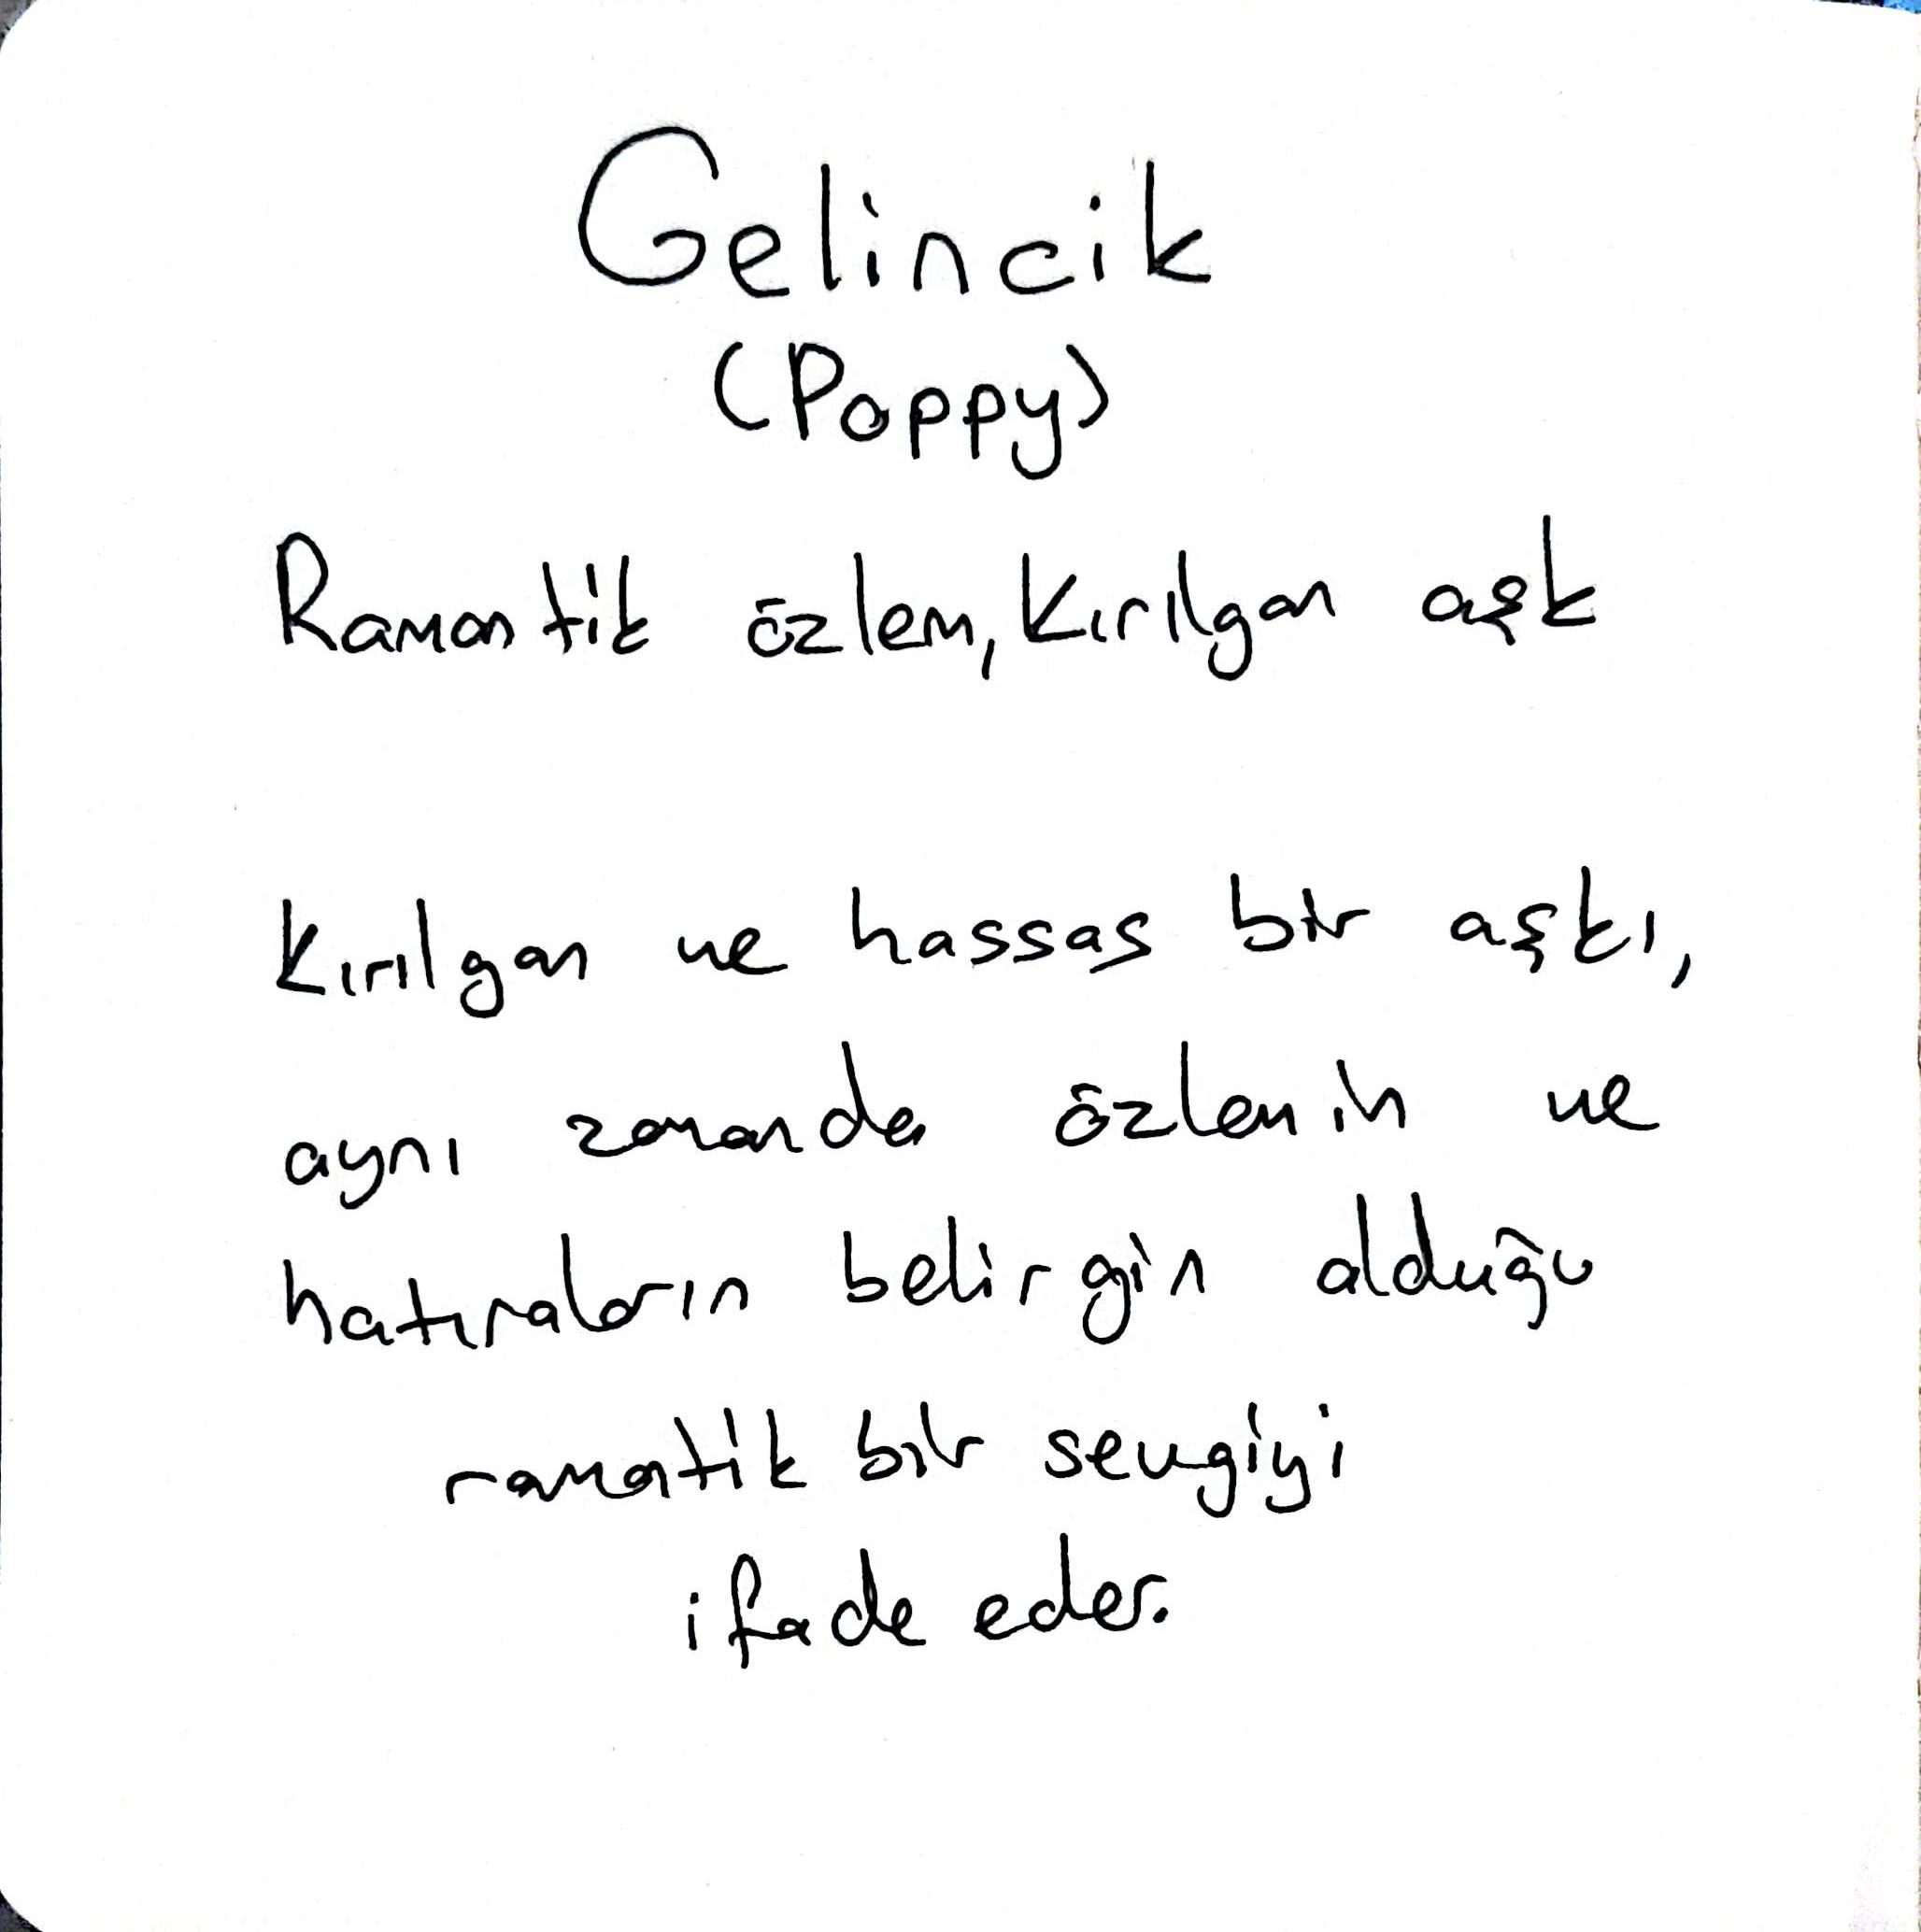 Gelincik
(Poppy)
Romantik özlem, kırılgan aşk
Kırılgan ve hassas bir aşkı,
aynı zamanda özlemin ve
hatıraların belirgin olduğu
romatik bir sevgiyi
ifade eder.